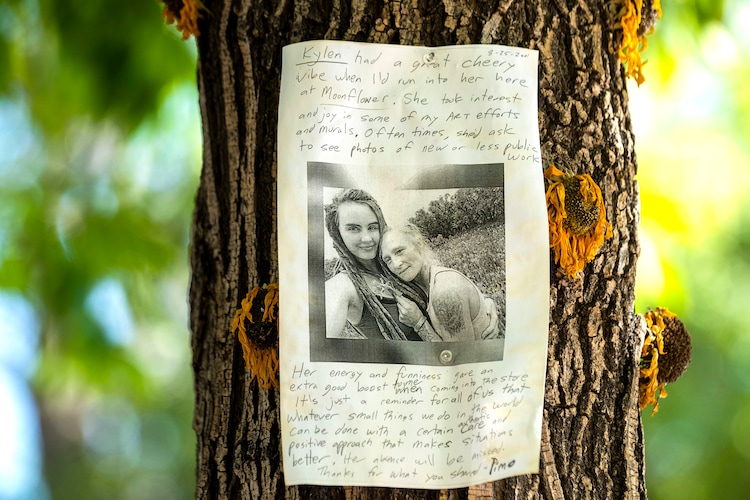 Kylen had a great cheery 8-25-2021
vibe when I'd run into her here
at Moonflower. She took interest
and joy in some of my ART efforts
and murals. Often times, she'd ask
to see photos of new or less public
work
Her energy and funniness gave an
extra good boost to me when coming into the store
It's just a reminder for all of us that
whatever small things we do in the world
can be done with a certain "care" and
positive approach that makes situations
better. Her absence will be missed.
Thanks for what you shared -